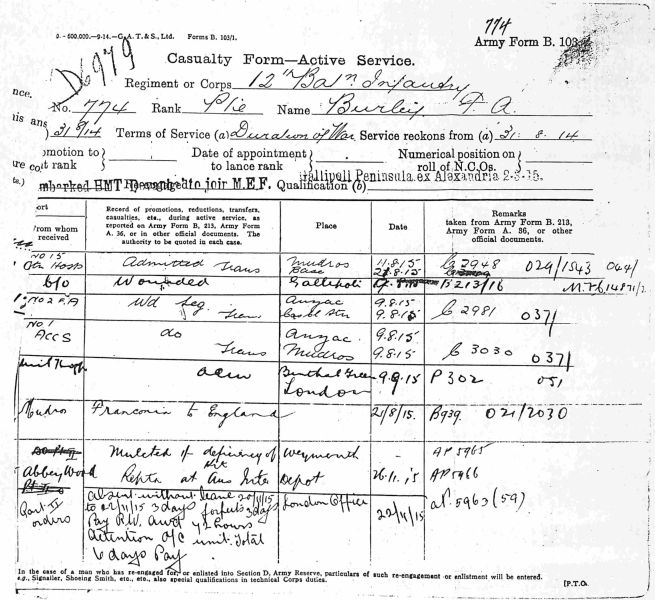 774
5.-600,000.-9-14.-C. A. T. & S., Ltd. Forms B. 103/1.
Army Form B. 103
D6979
Casualty Form—Active Service.
Regiment or Corps 12th Batn Infantry
No. 774 Rank Pte Name Burley F. A.
31/8/14 Terms of Service (a) Duration of War Service reckons from (a) 31. 8. 14
omotion to
rank
Date of appointment
to lance rank
Numerical position on
roll of N.C.Os.
embarked HMT to join M.E.F. Qualification (b) Gallipoli Peninsula ex Alexandria 2-3-15.
From whom
received
Record of promotions, reductions, transfers,
casualties, etc., during active service, as
reported on Army Form B. 213, Army Form
A. 36, or in other official documents. The
authority to be quoted in each case.
Place
Date
Remarks
taken from Army Form B. 213,
Army Form A. 36, or other
official documents.
No 15 Admitted Mudros 11.8.15 C 2948 024/1543 044/
Base 21.8.15
C/O Wounded Gallipoli B213/16
No 2 F.A Wd leg Anzac 9.8.15 C 2981 037/
Trans 9.8.15
No 1
ACCS do Anzac 9.8.15
Trans Mudros 9.8.15 C 3030 037/
Bethnal Green 9.9.15 P302 051
London
Mudros Franconia to England 21/8/15. B939. 021/2030
Mulcted of deficiency of Kit Weymouth AP 5965
Abbey Wood Reptd at Aus Inter Depot 26.11.15 AP 5966
Part II
orders
absent without leave 20/11/15
to 22/11/15 3 days forfeits 3 days
Pay R.W. Awd 72 hours
detention o/c unit. Total
6 days Pay.
London Office 22/11/15 AP. 5963 (59)
In the case of a man who has re-engaged for, or enlisted into Section D, Army Reserve, particulars of such re-engagement or enlistment will be entered.
e.g., Signaller, Shoeing Smith, etc., etc., also special qualifications in technical Corps duties.
[P.T.O.